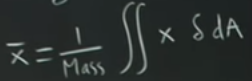 x̄ = 1/Mass ∬ x δ dA